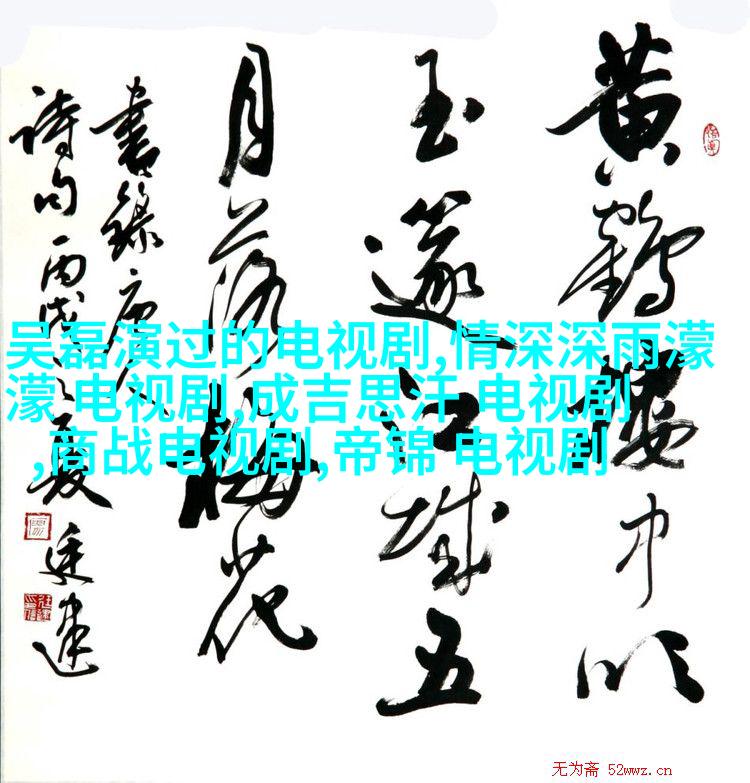 黄鶴楼中吹
玉篴江城五
月落梅花
書錄唐人
詩句丙戌之夏
吴磊演过的电视剧,情深深雨濛
濛 电视剧,成吉思汗 电视剧
,商战电视剧,帝锦 电视剧
无为斋 52wwz.cn